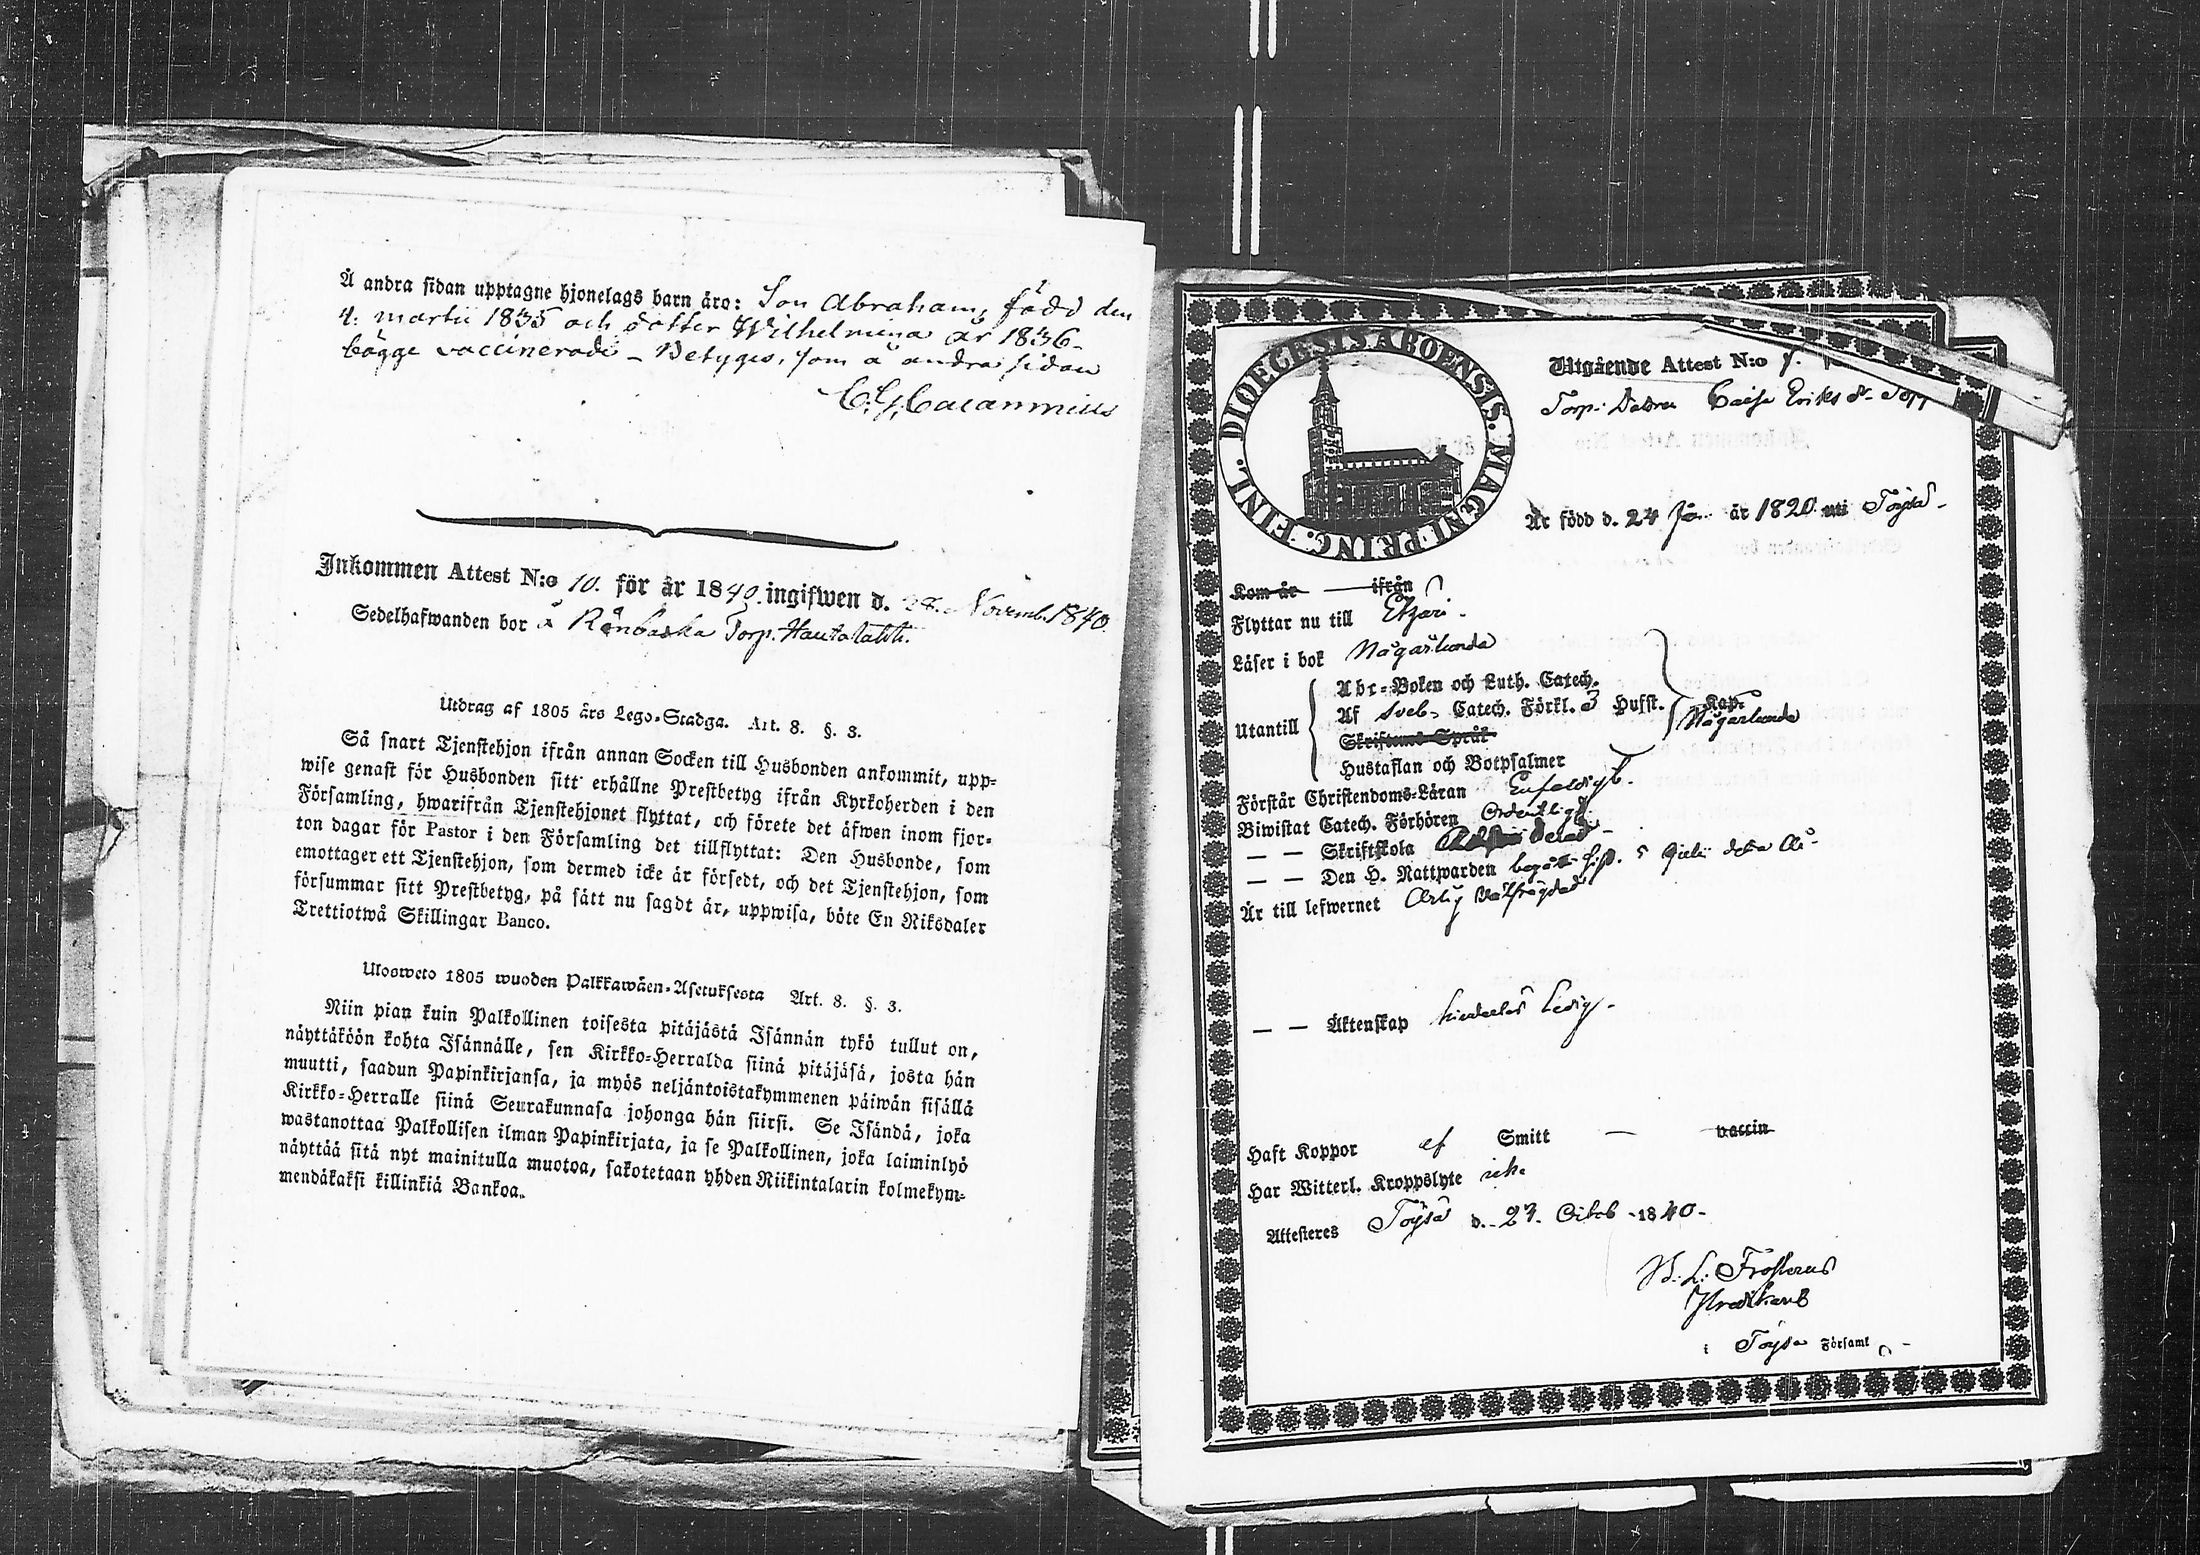 Å andra sidan upptagne hjonelags barn äro: Son Abraham, född den
4. martii 1835 och dotter Wilhelmina år 1836-
bägge vaccinerade - Betygas, som å andra sidan
Inkommen Attest N:o 10. för år 1840. ingifwen d. 28. Novemb. 1840.
Sedelhafwanden bor å Torp. Hautalahti.
Utdrag af 1805 års Lego-Stadga. Art. 8. §. 3.
Så snart Tjenstehjon ifrån annan Socken till Husbonden ankommit, upp-
wise genast för Husbonden sitt erhållne Prestbetyg ifrån Kyrkoherden i den
Församling, hwarifrån Tjenstehjonet flyttat, och förete det äfwen inom fjor-
ton dagar för Pastor i den Församling det tillflyttat: Den Husbonde, som
emottager ett Tjenstehjon, som dermed icke är försedt, och det Tjenstehjon, som
försummar sitt Prestbetyg, på sätt nu sagdt är, uppwisa, böte En Riksdaler
Trettiotwå Skillingar Banco.
Ulosweto 1805 wuoden Palkkawäen-Asetuksesta Art. 8. §. 3.
Niin pian kuin Palkollinen toisesta pitäjästä Isännän tykö tullut on,
näyttäköön kohta Isännälle, sen Kirkko-Herralda siinä pitäjäsä, josta hän
muutti, saadun Papinkirjansa, ja myös neljäntoistakymmenen päiwän sisällä
Kirkko-Herralle siinä Seurakunnasa johonga hän siirsi. Se Isändä, joka
wastanottaa Palkollisen ilman Papinkirjata, ja se Palkollinen, joka laiminlyö
näyttää sitä nyt mainitulla muotoa, sakotetaan yhden Riikintalarin kolmekym-
mendäkaksi killinkiä Bankoa.
DIOECESIS ABOENSIS. MAGNI PRINC. FINL.
Utgående Attest N:o
Torp. Dottren Caisa Eriks d.
Är född d. 24 år 1820 uti Töysä-
Kom år ifrån
Flyttar nu till Etzäri-
Läser i bok Någorlunda
Abc-Boken och Luth. Catech.
Utantill Af Sveb. Catech. Förkl. 3 Hufst. Kap. Någorlunda
Skriftens Språk
Hustaflan och Botpsalmer
Förstår Christendoms-Läran Enfaldigt.
Biwistat Catech. Förhören Ordentligt
— — Skriftskola
— — Den H. Nattwarden begått sist. 5 Julii detta År-
Är till lefwernet Ärlig Wälfrägdad
— — Äktenskap hinderlös Ledig-
Haft Koppor ej Smitt — vaccin
Har Witterl. Kroppslyte icke
Attesteres Töysä d. 27. Octob -1840-
Frosterus
i Töysä Församl.